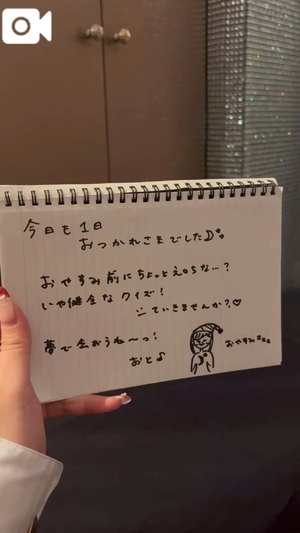 今日も1日
おつかれさまでした
おやすみ前にちょっとえろらな…?
いや健全なクイズ!
していきませんか?♡
夢で会おうね〜っ!
おと♪
おやすみzzz